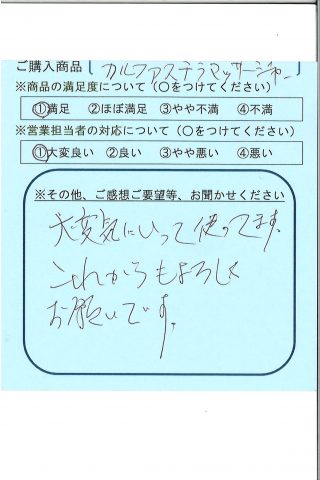 ご購入商品〔カルファステラマッサージャー
※商品の満足度について（〇をつけてください）
①満足 ②ほぼ満足 ③やや不満 ④不満
※営業担当者の対応について（〇をつけてください）
①大変良い ②良い ③やや悪い ④悪い
※その他、ご感想ご要望等、お聞かせください
大変気にいって使ってます。
これからもよろしく
お願いです。